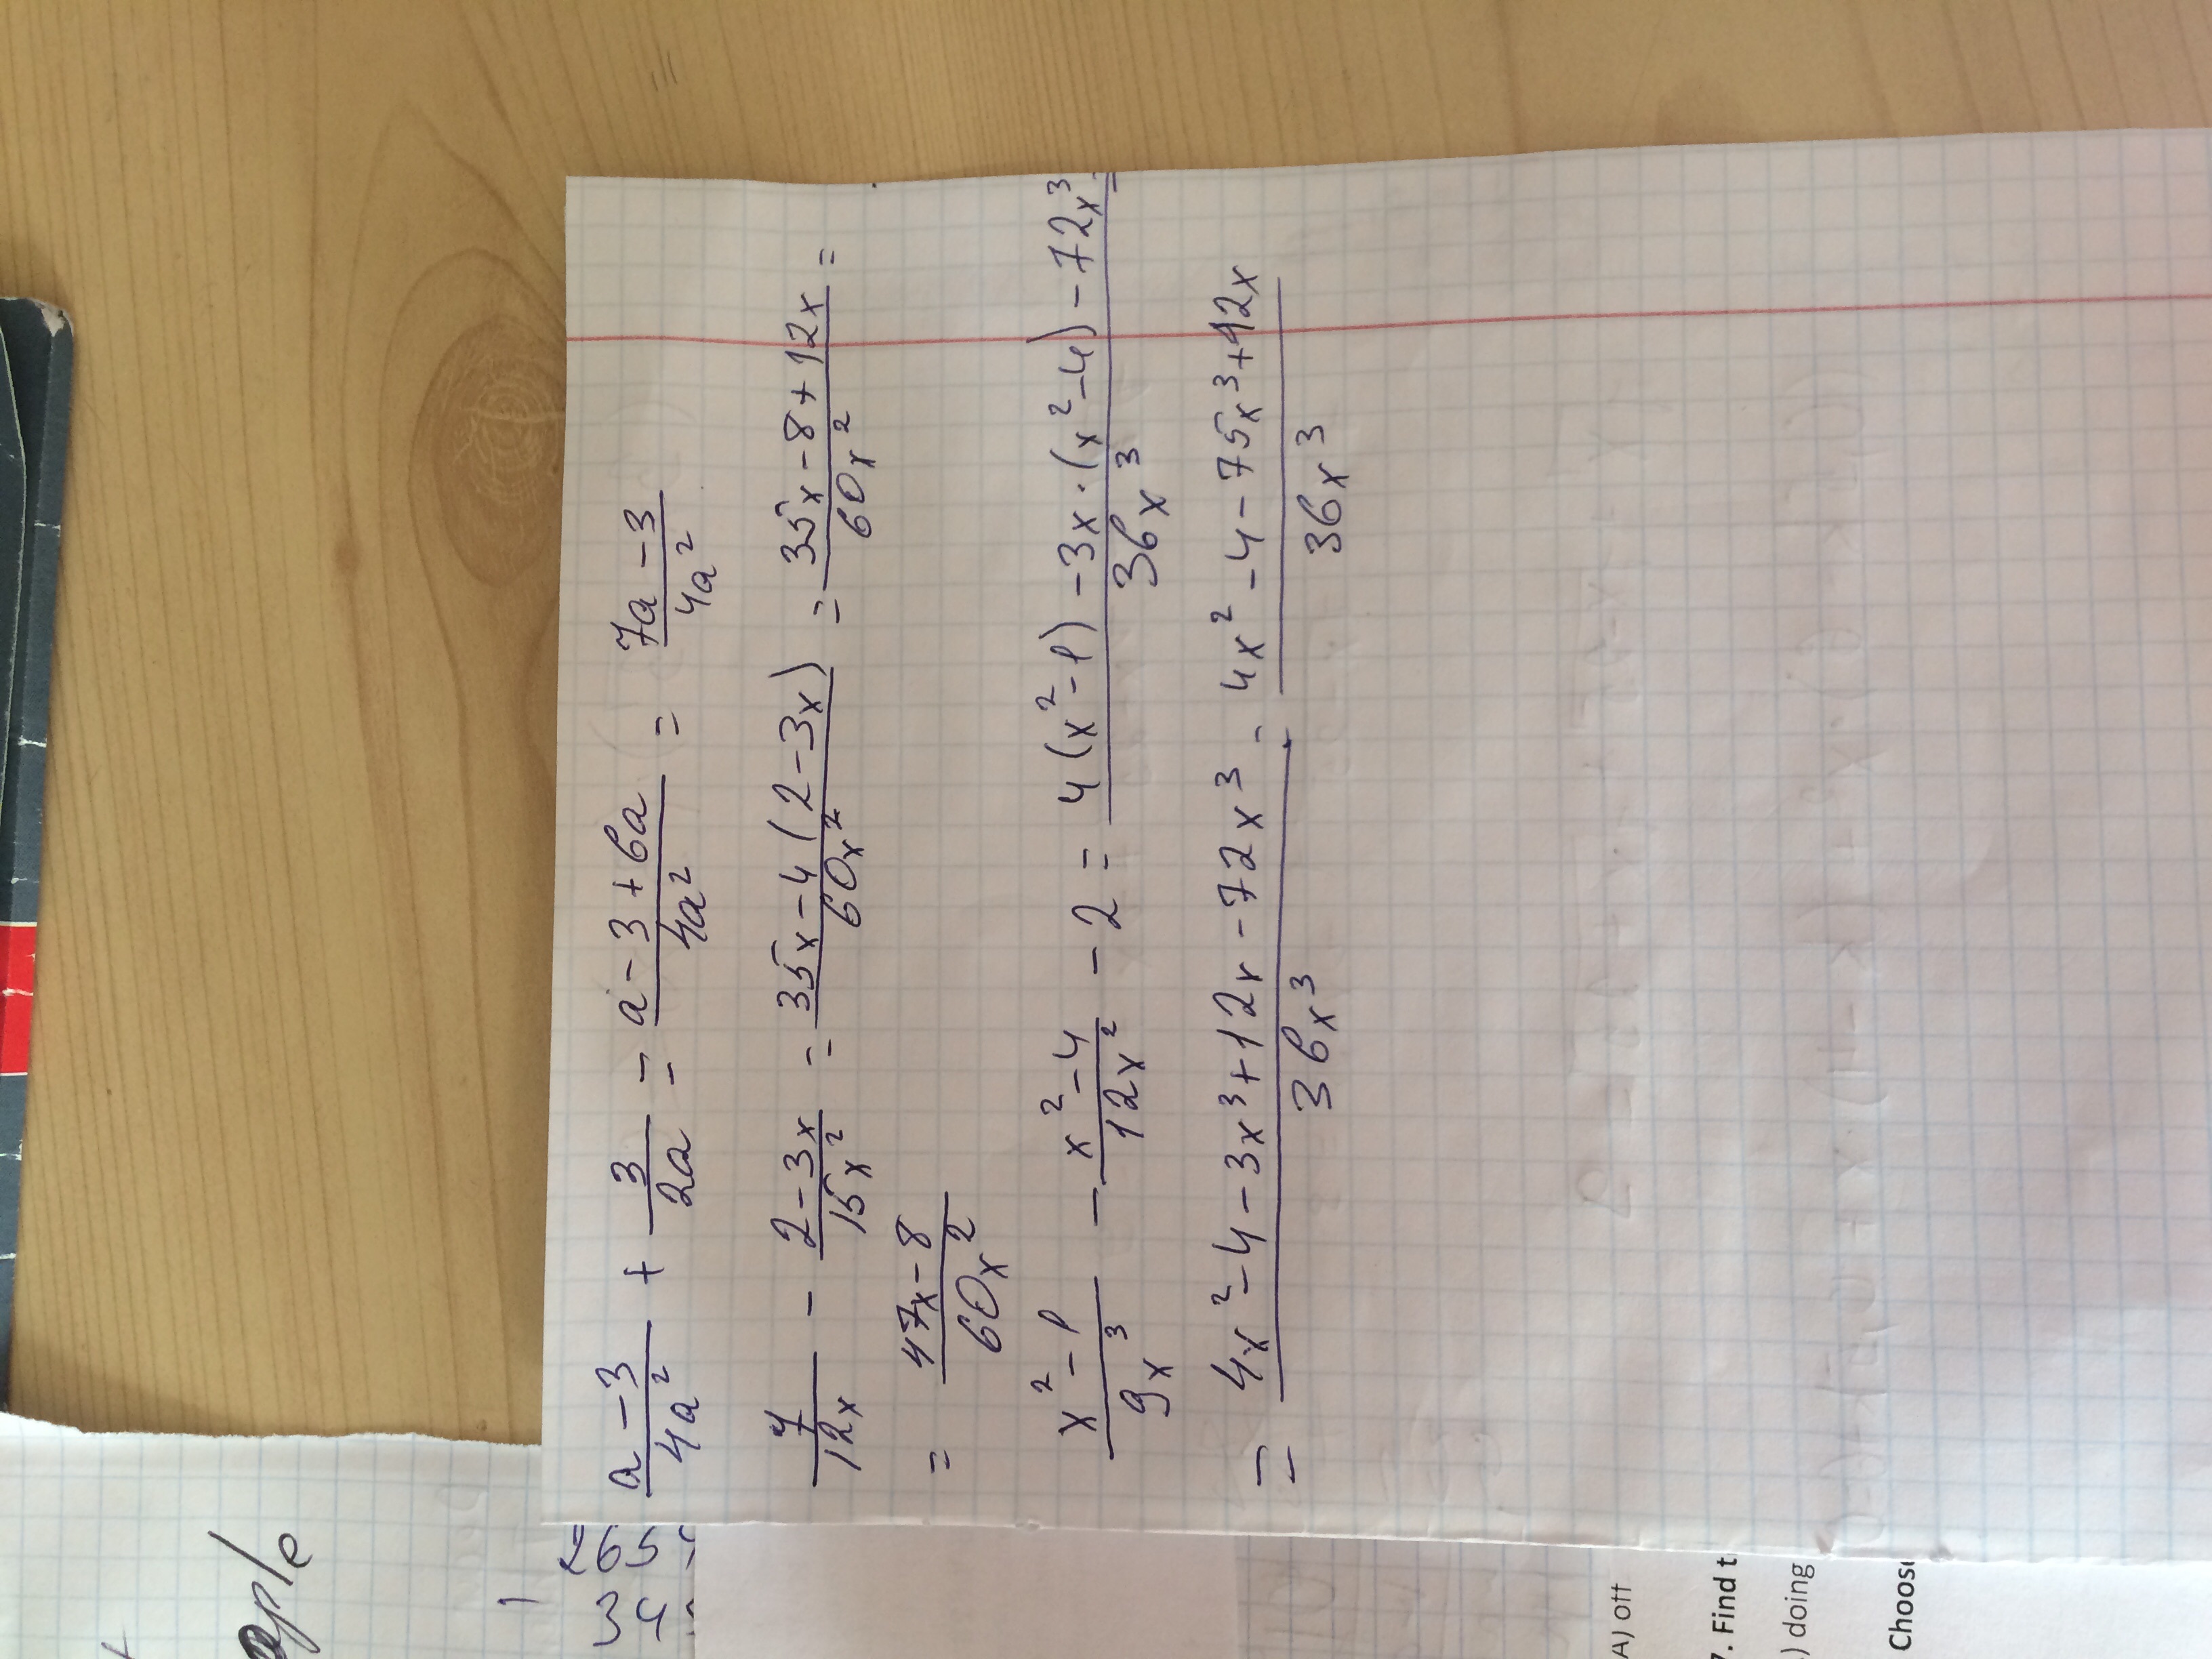 a-3/4a² + 3/2a = a-3+6a/4a² = 7a-3/4a²
7/12x - 2-3x/15x² = 35x-4(2-3x)/60x² = 35x-8+12x/60x² =
= 47x-8/60x²
x²-1/9x³ - x²-4/12x² - 2 = 4(x²-1)-3x·(x²-4)-72x³/36x³ =
= 4x²-4-3x³+12x-72x³/36x³ = 4x²-4-75x³+12x/36x³
ople
A) off
7. Find t
) doing
Choose